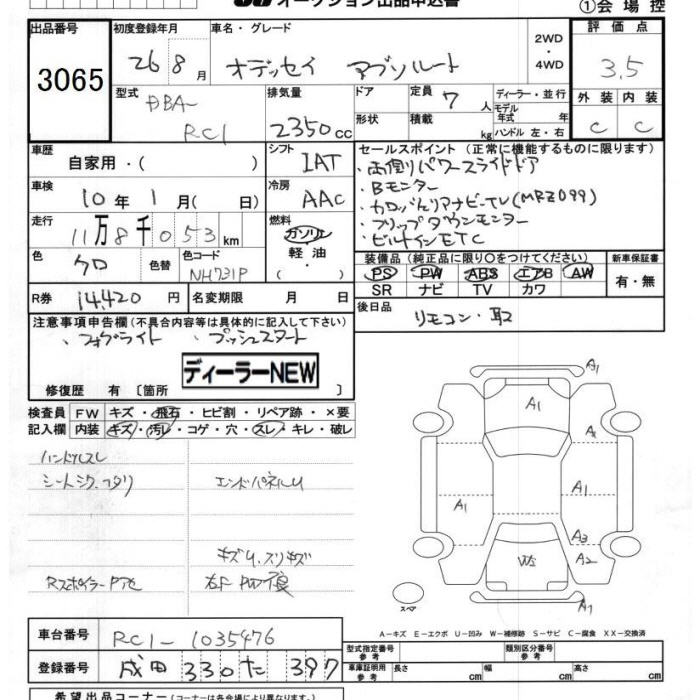 オークション出品申込書
①会場控
出品番号
3065
初度登録年月
26 8 月
車名・グレード
オデッセイ アブソルート
2WD
・
4WD
評価点
3.5
型式
DBA-
RC1
排気量
2350 cc
ドア
形状
定員 7 人
積載 kg
ディーラー・並行
モデル年式 年
ハンドル 左・右
外装 内装
C C
車歴
自家用・( )
シフト
IAT
車検
10 年 1 月 ( 日)
冷房
AAC
走行
11万8千053km
燃料
ガソリン
軽油
・( )
色
クロ
色替
色コード
NH731P
R券
14,420 円
名変期限 月 日
セールスポイント (正常に機能するものに限ります)
・両側パワースライドドア
・Bモニター
・カロッツェリアナビ-TV(MRZ099)
・フリップダウンモニター
・ビルトインETC
装備品 (純正品に限り○をつけてください)
PS PW ABS エアB AW
SR ナビ TV カワ
新車保証書
有・無
後日品
リモコン・取2
注意事項申告欄(不具合内容等は具体的に記入して下さい)
・フォグライト ・プッシュスタート
ディーラーNEW
修復歴 有 〔箇所 〕
検査員記入欄
FW キズ・飛石・ヒビ割・リペア跡・×要
内装 キズ・汚レ・コゲ・穴・スレ・キレ・破レ
ハンドルスレ
シートシワ、ヘタリ
エンドパネルU
キズU、スリキズ
Rスポイラー P アセ
右F PW不良
A1
A1
A2
A1
A1
A3
A2
W2
A1
スペア
A-キズ E-エクボ U-凹み W-補修跡 S-サビ C-腐食 XX-交換済
車台番号
RC1-1035476
登録番号
成田 330 た 397
型式指定番号
参考
類別区分番号
参考
車庫証明用
参考
長さ cm 幅 cm 高さ cm
希望出品コーナー(名称は各会場により異なります。)